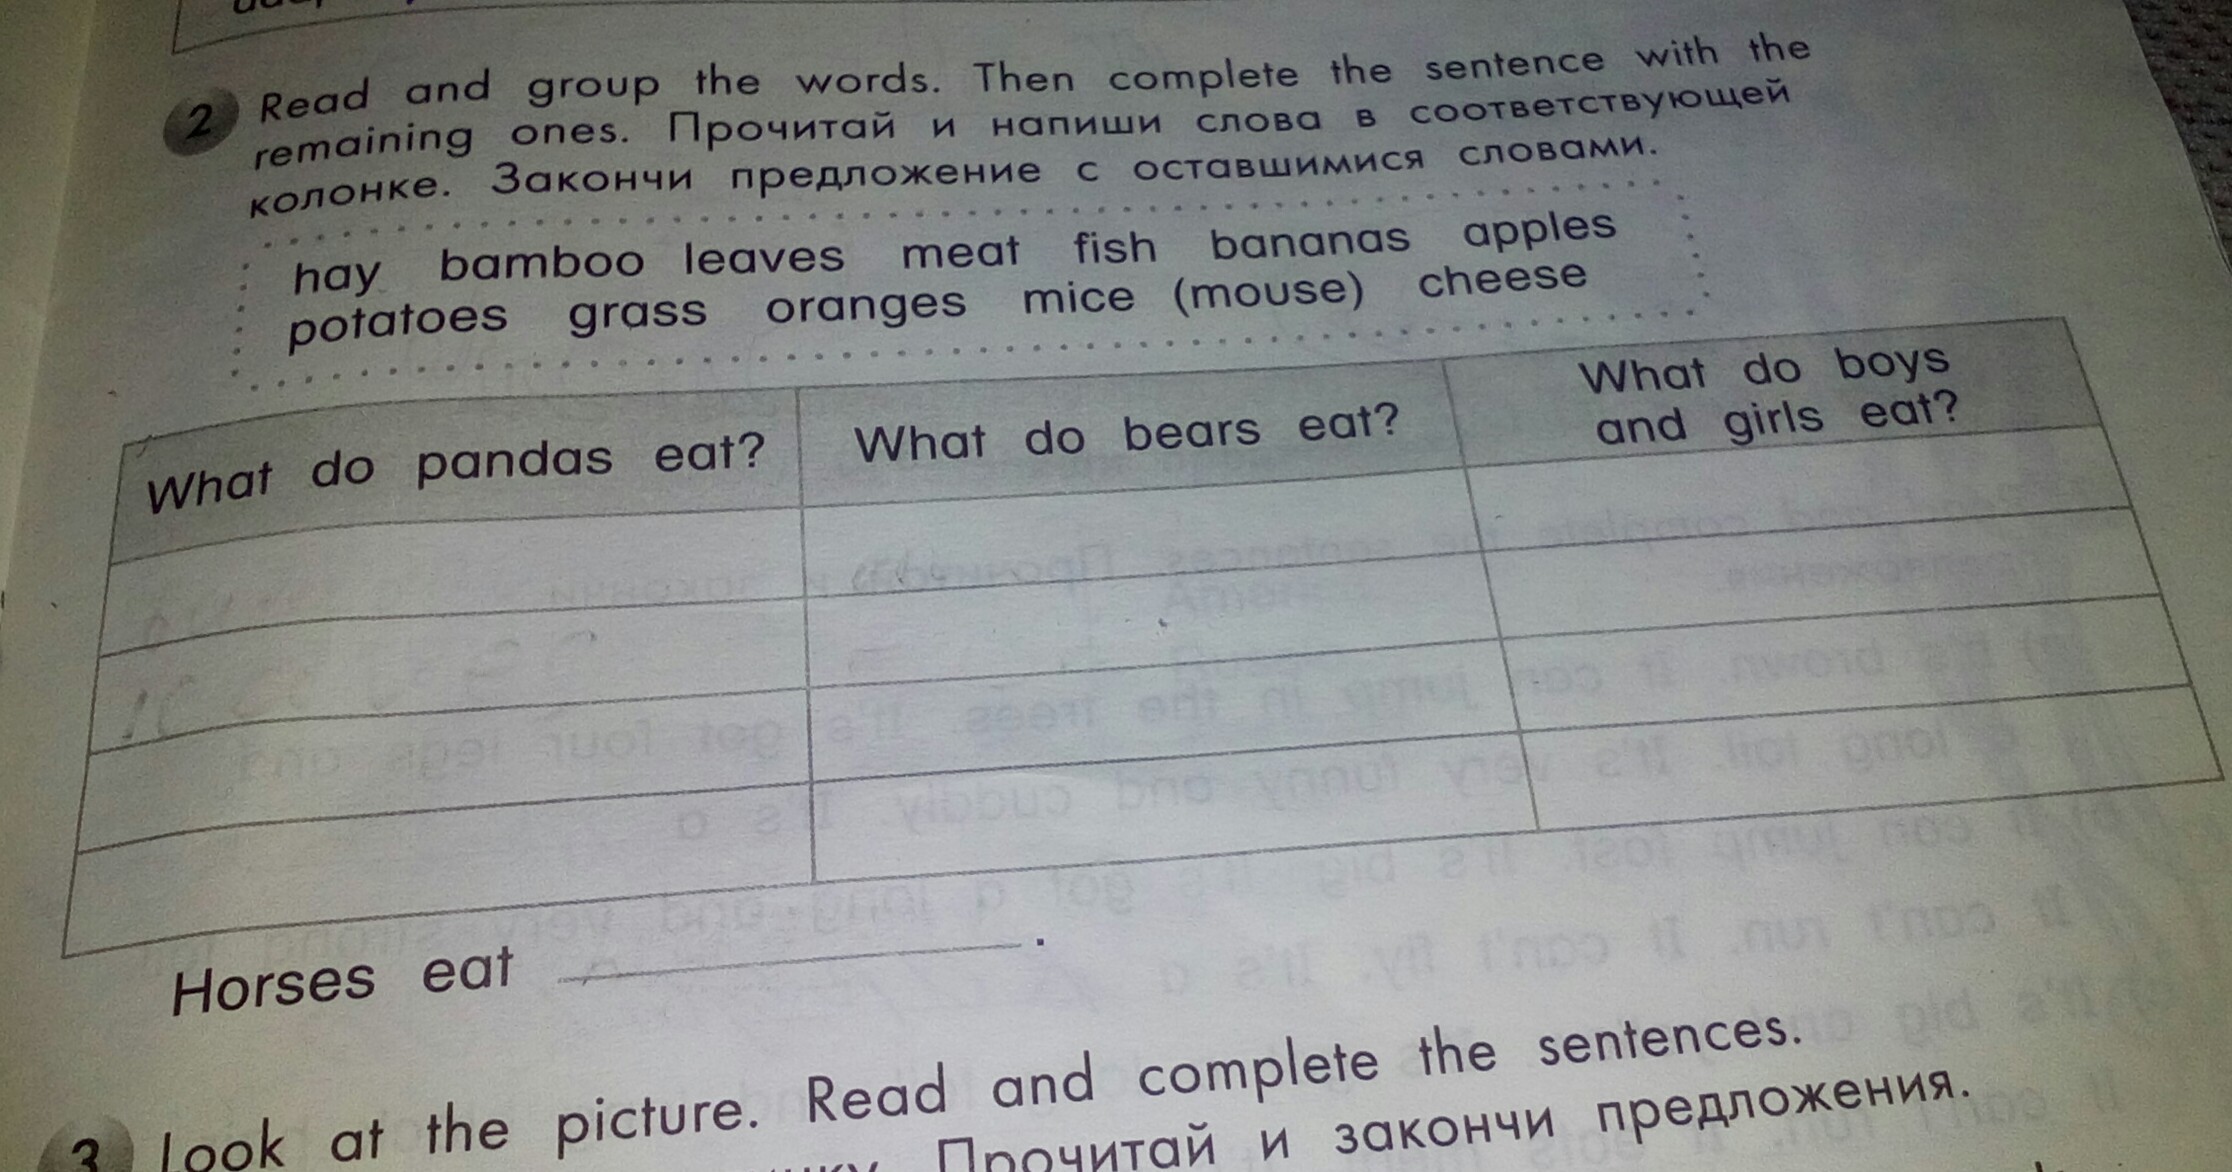 2 Read and group the words. Then complete the sentence with the
remaining ones. Прочитай и напиши слова в соответствующей
колонке. Закончи предложение с оставшимися словами.
hay bamboo leaves meat fish bananas apples
potatoes grass oranges mice (mouse) cheese
What do pandas eat?
What do bears eat?
What do boys
and girls eat?
Horses eat .
3 Look at the picture. Read and complete the sentences.
Прочитай и закончи предложения.